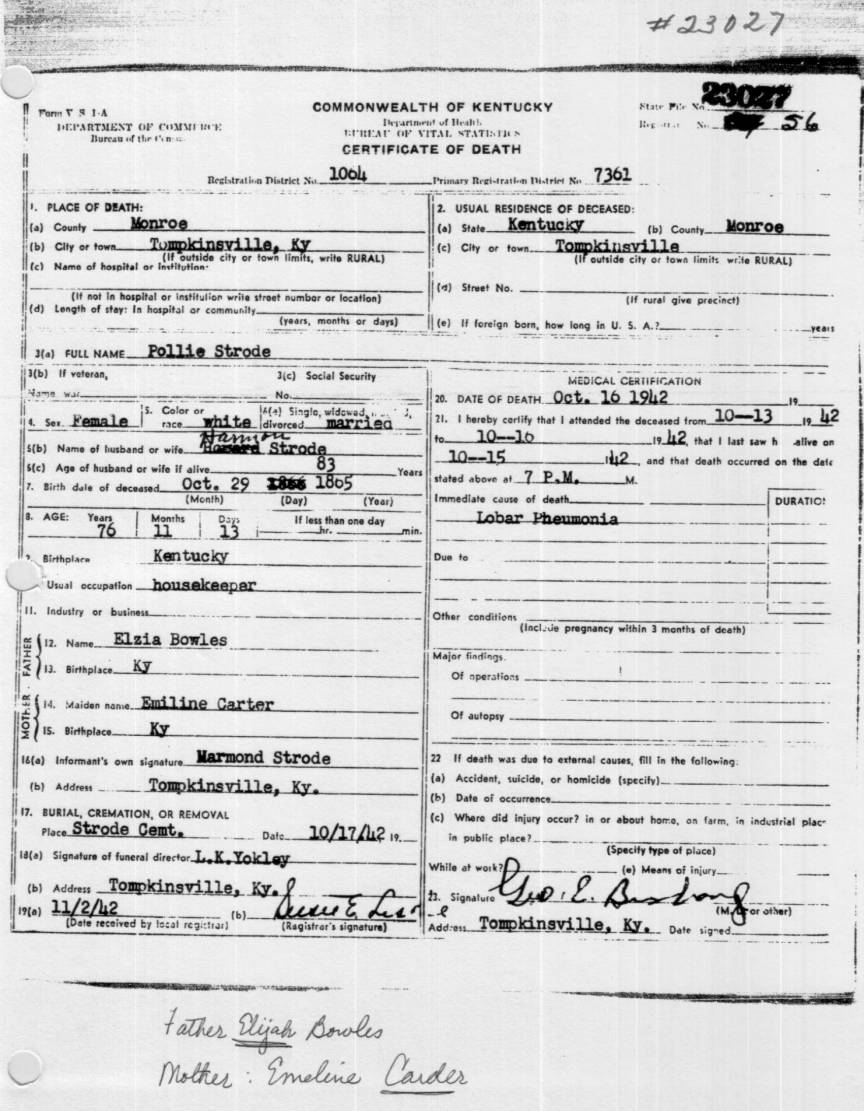 #23027
Form V S 1-A
DEPARTMENT OF COMMERCE
Bureau of the Census
COMMONWEALTH OF KENTUCKY
Department of Health
BUREAU OF VITAL STATISTICS
CERTIFICATE OF DEATH
State File No. 23027
Registrar No. 56
Registration District No. 1064 Primary Registration District No. 7361
1. PLACE OF DEATH:
(a) County Monroe
(b) City or town Tompkinsville, Ky
(If outside city or town limits, write RURAL)
(c) Name of hospital or institution:
(If not in hospital or institution write street number or location)
(d) Length of stay: In hospital or community
(years, months or days)
2. USUAL RESIDENCE OF DECEASED:
(a) State Kentucky (b) County Monroe
(c) City or town Tompkinsville
(If outside city or town limits write RURAL)
(d) Street No.
(If rural give precinct)
(e) If foreign born, how long in U. S. A.? years
3(a) FULL NAME Pollie Strode
3(b) If veteran, 3(c) Social Security
Name war No.
4. Sex Female 5. Color or race white 6(a) Single, widowed, divorced married
5(b) Name of husband or wife Harmon Strode
6(c) Age of husband or wife if alive 83 Years
7. Birth date of deceased Oct. 29 1865
(Month) (Day) (Year)
8. AGE: Years 76 Months 11 Days 13 If less than one day hr. min.
9. Birthplace Kentucky
Usual occupation housekeepar
11. Industry or business
FATHER
12. Name Elzia Bowles
13. Birthplace Ky
MOTHER
14. Maiden name Emiline Carter
15. Birthplace Ky
16(a) Informant's own signature Marmond Strode
(b) Address Tompkinsville, Ky.
17. BURIAL, CREMATION, OR REMOVAL
Place Strode Cemt. Date 10/17/42 19
18(a) Signature of funeral director L.K.Yokley
(b) Address Tompkinsville, Ky.
19(a) 11/2/42 (b)
(Date received by local registrar) (Registrar's signature)
MEDICAL CERTIFICATION
20. DATE OF DEATH Oct. 16 1942 19
21. I hereby certify that I attended the deceased from 10--13 19 42
to 10--16 19 42, that I last saw h alive on
10--15 42, and that death occurred on the date
stated above at 7 P.M. M.
Immediate cause of death DURATION
Lobar Pheumonia
Due to
Other conditions
(Include pregnancy within 3 months of death)
Major findings.
Of operations
Of autopsy
22 If death was due to external causes, fill in the following:
(a) Accident, suicide, or homicide (specify)
(b) Date of occurrence
(c) Where did injury occur? in or about home, on farm, in industrial plac
in public place?
(Specify type of place)
While at work? (e) Means of injury
23. Signature Geo. E. Bushong
(M. D. or other)
Address Tompkinsville, Ky. Date signed
Father Elijah Bowles
Mother: Emeline Carder